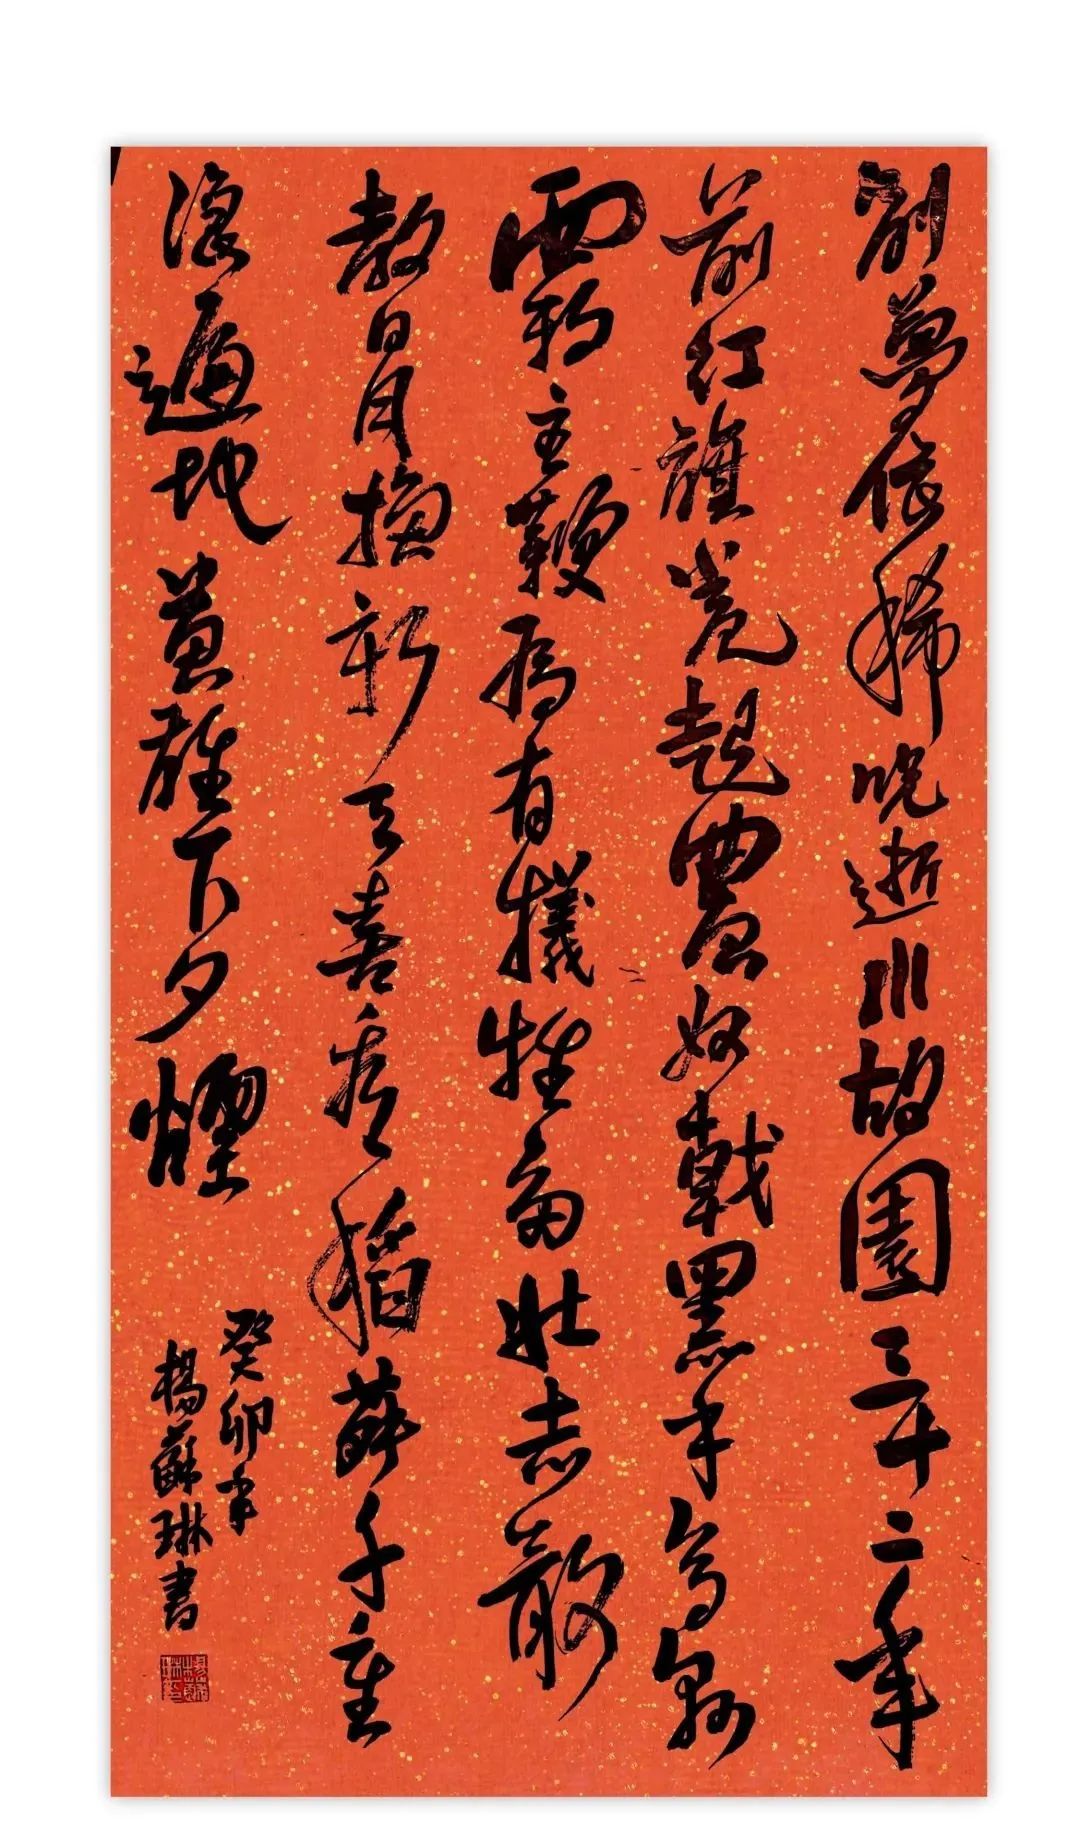 別夢依稀咒逝川故園三十二年
前红旗卷起農奴戟黑手高懸
霸主鞭為有犧牲多壮志敢
教日月換新天喜看稻菽千重
浪遍地英雄下夕煙
癸卯年
楊蘇琳書